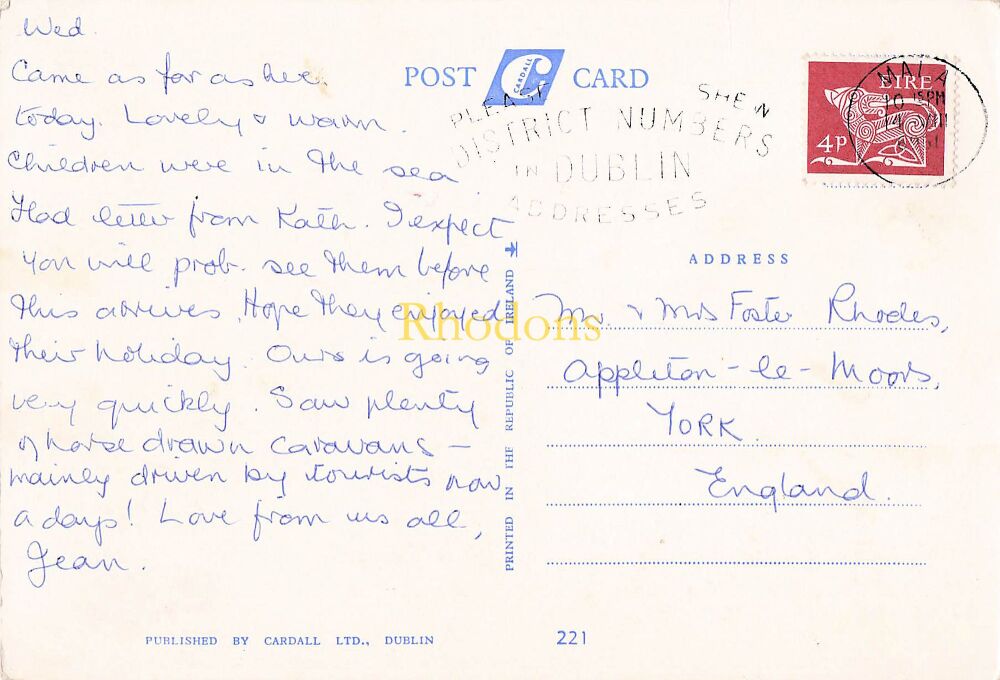 Wed.
Came as far as here
today. Lovely & warm.
Children were in the sea
Had letter from Kath. I expect
you will prob. see them before
this arrives. Hope they enjoyed
their holiday. Ours is going
very quickly. Saw plenty
of horse drawn caravans —
mainly driven by tourists now
a days! Love from us all,
Jean.
POST CARD
CARDALL
PLEASE SHEW
DISTRICT NUMBERS
IN DUBLIN
ADDRESSES
EIRE
4P
MALA
10 15PM
ADDRESS
Mr. & Mrs Foster Rhodes,
Appleton-le-Moors,
YORK.
England.
Rhodons
PRINTED IN THE REPUBLIC OF IRELAND
PUBLISHED BY CARDALL LTD., DUBLIN
221